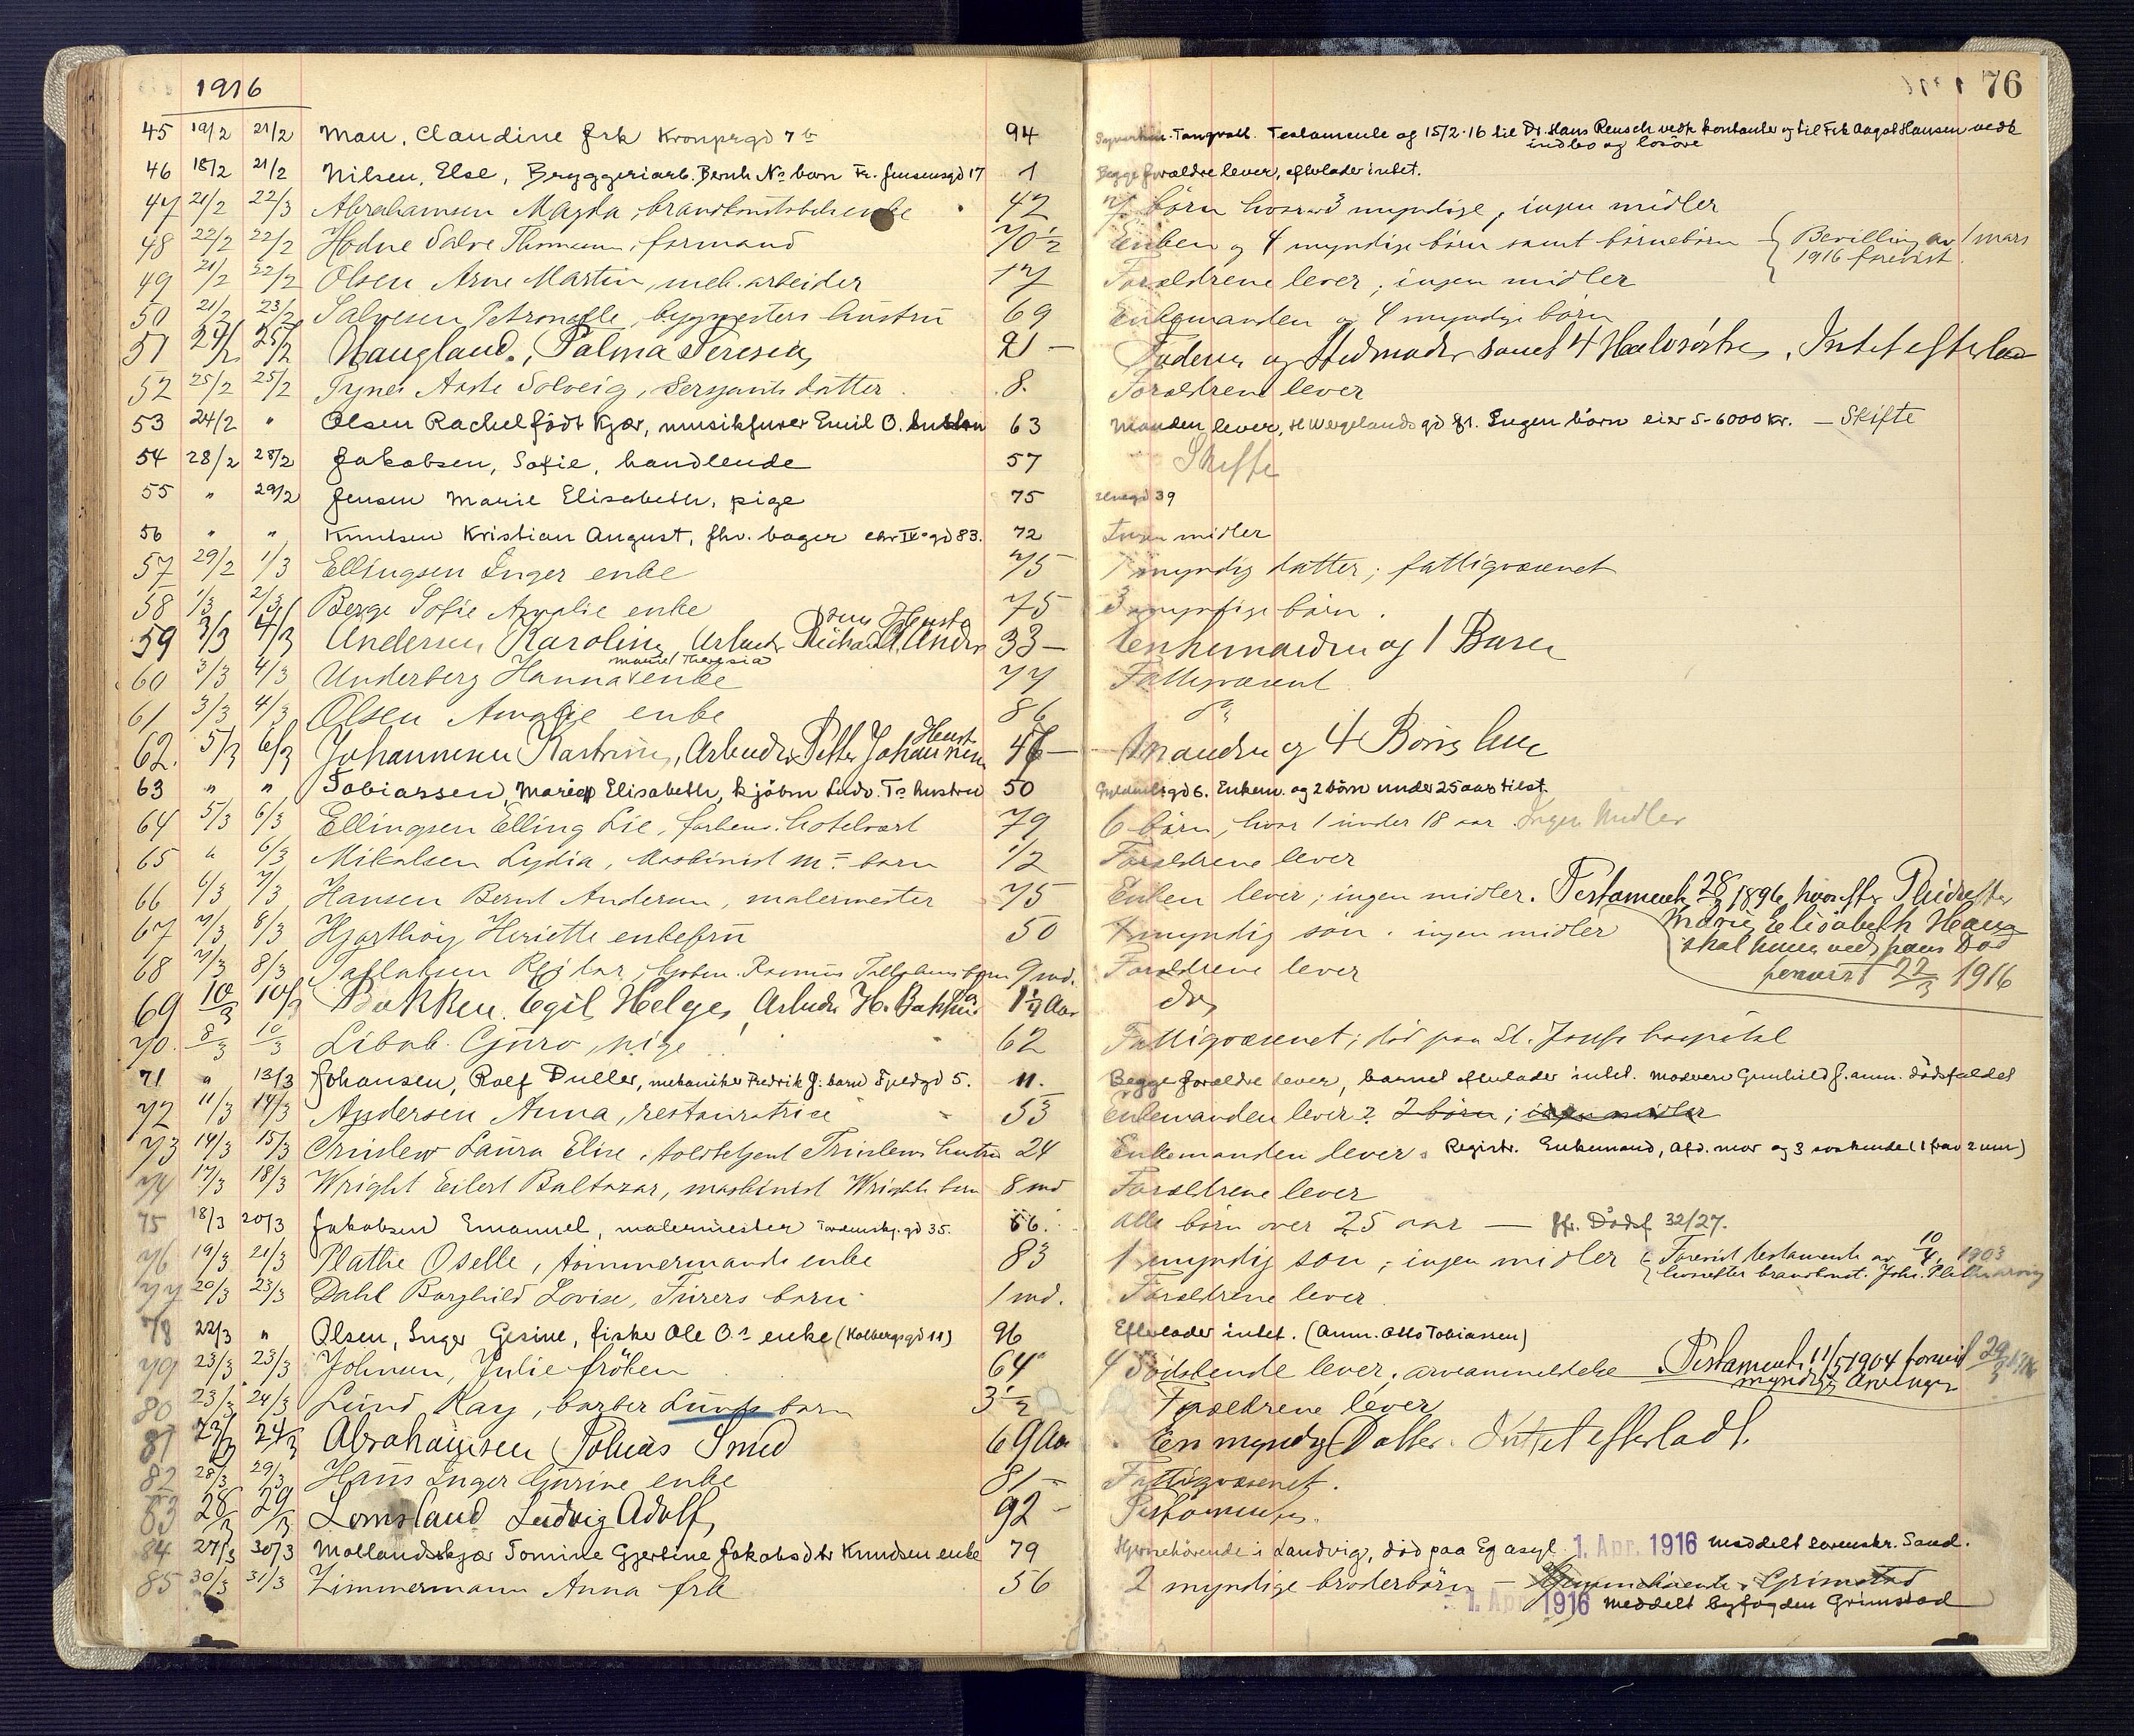 1916
76
45 19/2 21/2 Mau, Claudine frk Kronprgd 7b 94 Tangvall. Testamente af 15/2-16 til Dr. Hans Reusch vedk kontanter og til Frk Aagot Hansen vedk
indbo og løsøre
46 18/2 21/2 Nilsen, Else, Bryggeriarb. Bernh Ns barn Fr. Jensensgd 17 1 Begge forældre lever, efterlader intet.
47 21/2 22/3 Abrahamsen Magda, brandkonstabelsenke 42 7 børn hvorav 3 myndige, ingen midler
48 22/2 22/2 Hodne Salve Thomann, formand 70½ Enken og 4 myndige børn samt børnebørn { Bevilling av 1 mars
1916 forevist
49 21/2 22/2 Olsen Arne Martin, mek. arbeider 17 Forældrene lever, ingen midler
50 21/2 23/2 Salvesen Petronelle, bygmesters hustru 69 Enkemanden og 4 myndige børn
51 24/2 25/2 Haugland, Palma Teresia, 21 — Faderen og Stedmoder samt 4 Halvsøstre, Intet efterla
52 25/2 25/2 Aaste Solveig, Sergeants datter 8. Forældrene lever
53 24/2 " Olsen Rachel født Kjær, musikfurer Emil O. hustru 63 Manden lever, H Wergelandsgd 81. Ingen børn eier 5-6000 kr. — Skifte
54 28/2 28/2 Jakobsen, Sofie, handlende 57 Skifte
55 " 29/2 Jensen Marie Elisabeth, pige 75 39
56 " " Knutsen Kristian August, fhv. bager Chr IVs gd 83. 72 Ingen midler
57 29/2 1/3 Ellingsen Inger enke 75 1 myndig datter; fattigvæsenet
58 1/3 2/3 Berge Sofie Amalie enke 75 3 myndige børn.
59 3/3 4/3 Andersen, Karoline, Arbeider Richard Anders 33 — Enkemanden og 1 Barn
Marie Theresia
60 3/3 4/3 Underberg Hanna enke 77 Fattigvæsenet
61 3/3 4/3 Olsen Amalie enke 86 do
62. 5/3 6/3 Johannesen Kastrine, Arbeider Petter Johannesen Hust 46 — Manden og 4 Børn
63 " " Tobiassen, Marie Elisabeth, kjøbm Ludv. Ts hustru 50 gd 6. Enkem. og 2 børn under 25 aar tilst.
64 5/3 6/3 Ellingsen Elling Lie, forhenv. hotelvært 79 6 børn, hvor 1 under 18 aar. Ingen Midler
65 " 6/3 Mikalsen Lydia, Maskinist Ms barn 1/2 Forældrene lever
66 6/3 7/3 Hansen Bernt Andersen, malermester 75 Enken lever; ingen midler. Testament 28/ 1896, hvorefter
Marie Elisabeth Hans
67 7/3 8/3 Hjorthøy Henriette enkefru 50 1 myndig søn. ingen midler
68 7/3 8/3 9 md. Forældrene lever
forevist 22/3 1916
69 10/3 10/3 Bakken, Egil Helge, Arbeider H. Bakken 1¼ Aar do,
70. 8/3 10/3 Libob Guro, pige 62 Fattigvæsenet; død paa St. Josefs hospital
71 " 13/3 Johansen, Rolf Duller, mekaniker Fredrik J. barn Fjeldgd 5. 11. Begge forældre lever, barnet efterlader intet. Moderen Gunhild J. anm. dødsfaldet
72 11/3 14/3 Andersen Anna, restauratrice 53 Enkemanden lever? 2 børn; ingen midler
73 14/3 15/3 Laura Elise, toldbetjent hustru 24 Enkemanden lever. Registr. Enkemand, Afd. mor og 3 søskende (1 frav 2 um)
74 17/3 18/3 Wright Eilert Baltazar, maskinist Wrights barn 8 md Forældrene lever
75 18/3 20/3 Jakobsen Emanuel, malermester Tordenskj. gd 35. 66. Alle børn over 25 aar — jfr. Dødsf 32/27.
76 19/3 21/3 Plathe Oselle, tømmermands enke 83 1 myndig søn; ingen midler { Forevist testamente av 10/4 1903
hvorefter brandkonst. Joh. Plathe arving
77 20/3 23/3 Dahl Borghild Lovise, Furers barn 1 md. Forældrene lever.
78 22/3 " Olsen, Inger Gesine, fisker Ole O.s enke (Holbergsgd 11) 96 Efterlader intet. (Anm. Otto Tobiassen)
79 23/3 23/3 Johnsen, Julie frøken 64 4 Sødskende lever, arveanmeldelse. Testament 11/5 1904 forevist 29/3 1916
myndige Arvinger
80 23/3 24/3 Lund Kay, barber Lunds barn 3½ Forældrene lever
81 23/3 24/3 Abrahamsen Tobias Smed 69 Aar En myndig Datter. Intet efterladt.
82 28/3 29/3 Haus Inger Gurine enke 81 — Fattigvæsenet.
83 28/3 29/3 Lomsland Ludvig Adolf, 92 — Testamente.
84 27/3 30/3 Mollandskjær Tomine Gjertine Jakobsdtr Knudsen enke 79 Hjemehørende i Landvig, død paa Eg asyl 1. Apr. 1916 meddelt sorenskr. Sand.
85 30/3 31/3 Zimmermann Anna frk 56 2 myndige broderbørn — Hjemmehørende i Grimstad
1. Apr. 1916 meddelt byfogden Grimstad